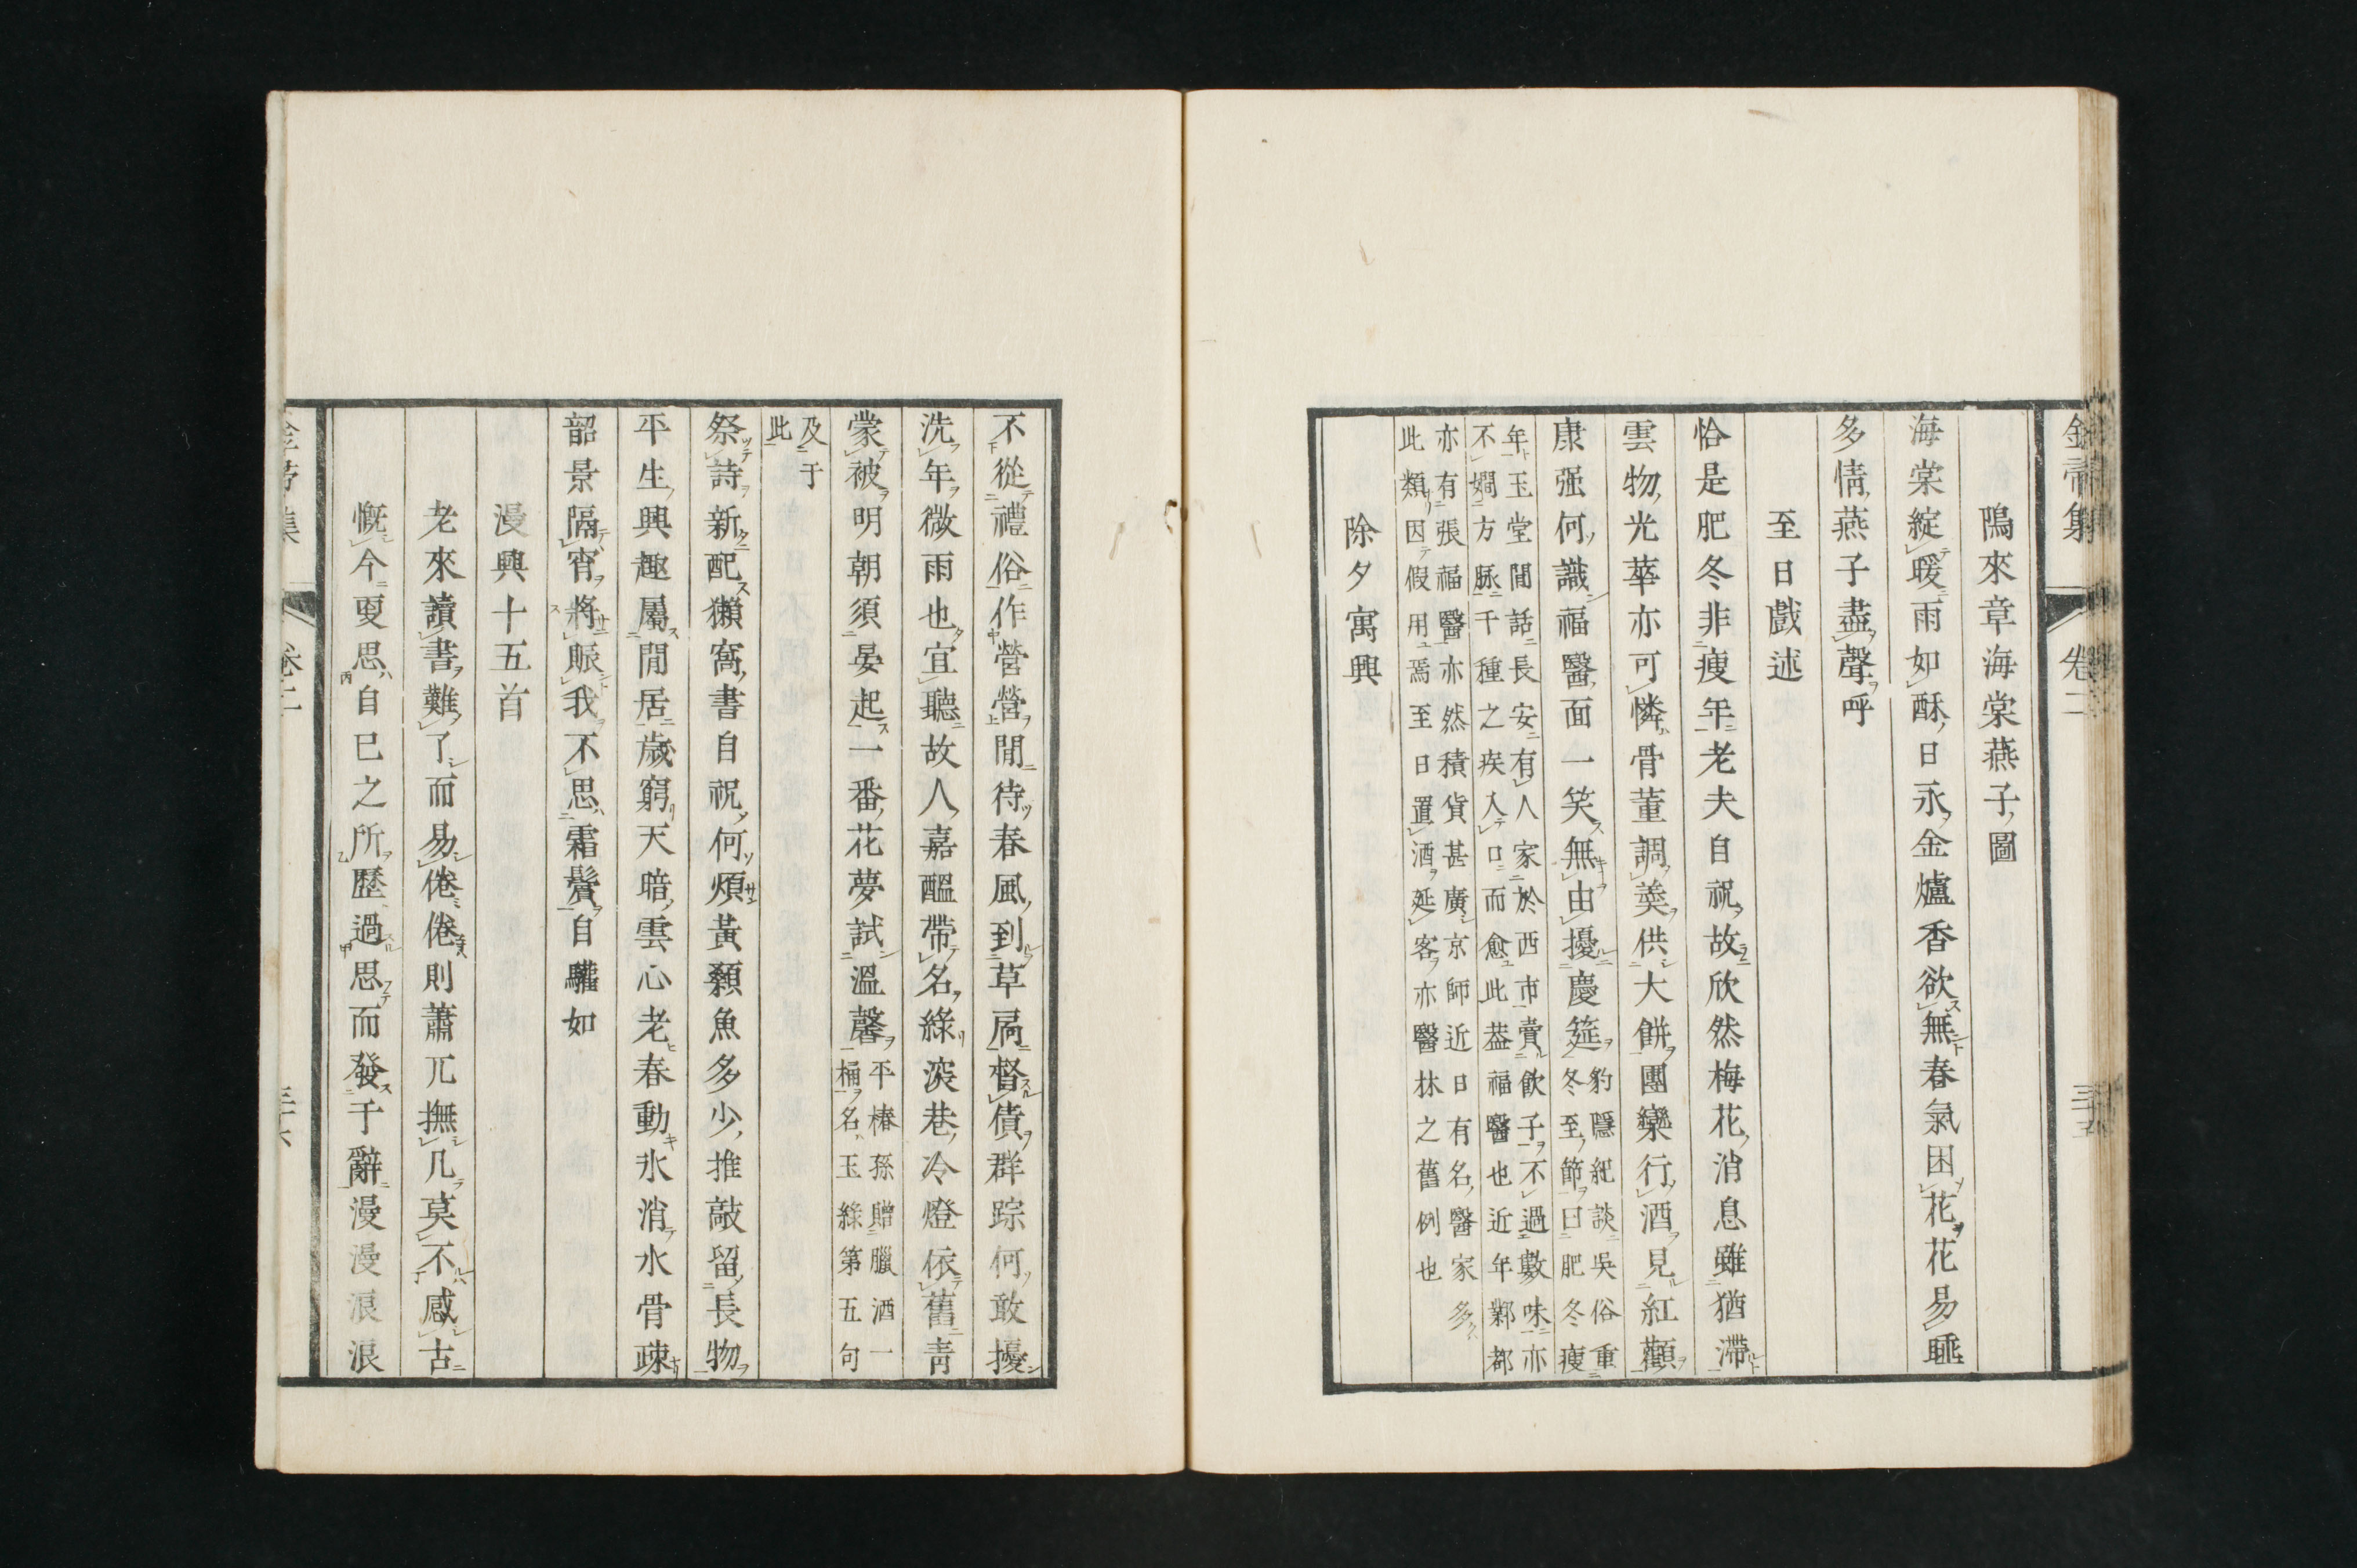 金帚集 卷二 三十五
鳴來章海棠燕子圖
海棠綻暖雨如酥日永金爐香欲無春氣困花花易睡
多情燕子盡聲呼
至日戲述
恰是肥冬非瘦年老夫自祝故欣然梅花消息雖猶滯
雲物光華亦可憐骨董調羹供大餅團欒行酒見紅顴
康强何識福醫面一笑無由擾慶筵
豹隱紀談吳俗重
冬至節曰肥冬瘦
年玉堂閒話長安有人家於西市賣飲子不過數味亦
不嫺方脉千種之疾入口而愈此葢福醫也近年鄴都
亦有張福醫亦然積貨甚廣京師近日有名醫家多
此類因假用焉至日置酒延客亦醫林之舊例也
除夕寓興
不從禮俗作營營閒待春風到草扃督債群踪何敢擾
洗年微雨也宜聽故人嘉醞帶名綠深巷冷燈依舊靑
蒙被明朝須晏起一番花夢試溫馨
平椿孫贈臘酒一
桶名玉綠第五句
及于
此
祭詩新配獺窩書自祝何煩黃纇魚多少推敲留長物
平生興趣屬閒居歲窮天暗雲心老春動氷消水骨疎
韶景隔宵將賑我不思霜鬢自驢如
漫興十五首
老來讀書難了而易倦倦則蕭兀撫几莫不感古
慨今更思自己之所歷過思而發于辭漫漫浪浪
卷二